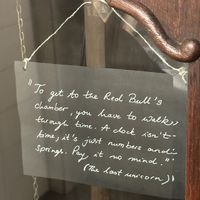 "To get to the Red Bull's
chamber, you have to walk
through time. A clock isn't
time, it's just numbers and
springs. Pay it no mind."
(The last unicorn.)